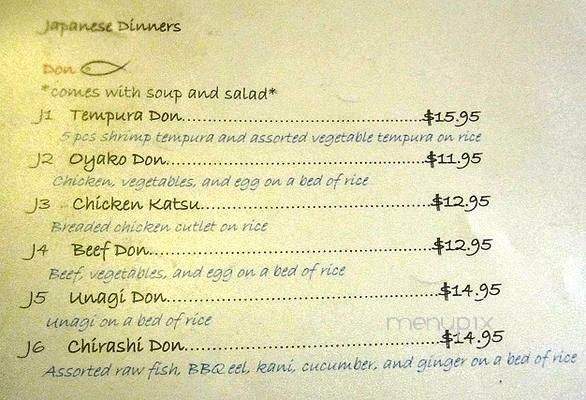 Japanese Dinners
Don
*comes with soup and salad*
J1 Tempura Don..............................$15.95
5 pcs shrimp tempura and assorted vegetable tempura on rice
J2 Oyako Don................................$11.95
Chicken, vegetables, and egg on a bed of rice
J3 Chicken Katsu............................$12.95
Breaded chicken cutlet on rice
J4 Beef Don.................................$12.95
Beef, vegetables, and egg on a bed of rice
J5 Unagi Don................................$14.95
Unagi on a bed of rice
menupix
J6 Chirashi Don.............................$14.95
Assorted raw fish, BBQ eel, kani, cucumber, and ginger on a bed of rice